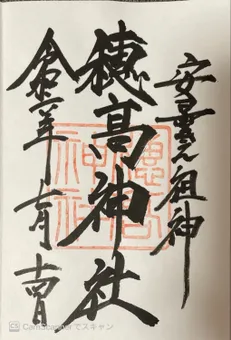 安曇之祖神
穂高神社
令和二年 月 日
穗高
神社
CS CamScannerでスキャン